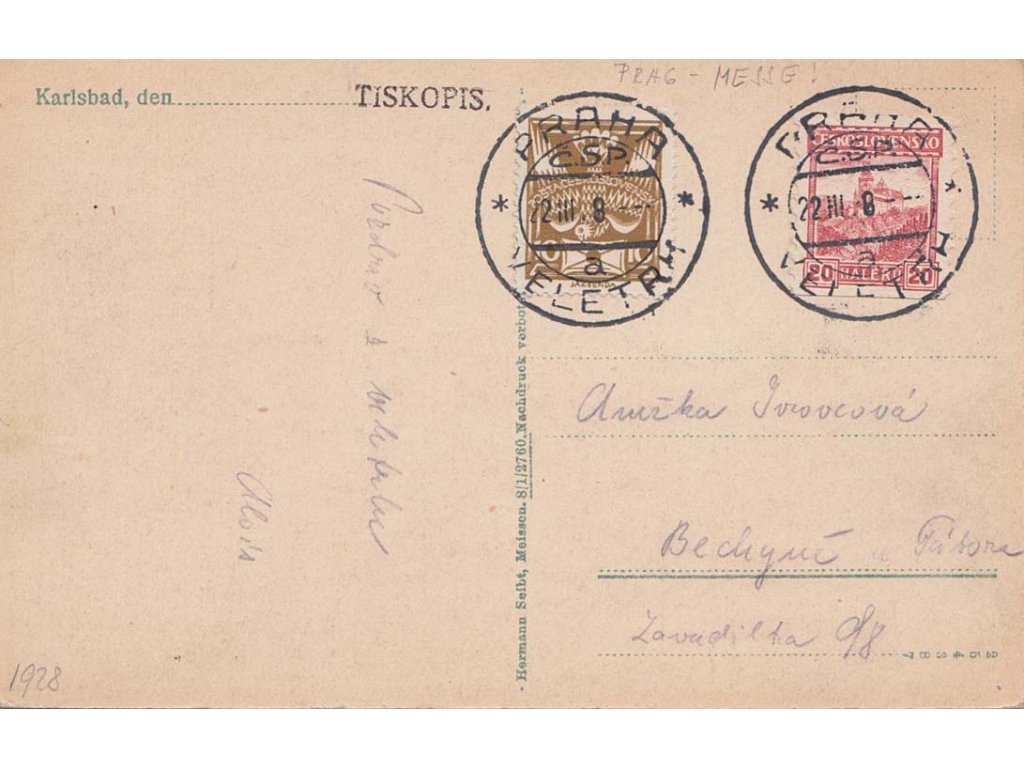 PRAG - MESSE!
Karlsbad, den
TISKOPIS.
PRAHA
Č.S.P.
22 III 8
a
VELETRH
POSTA ČESKOSLOVENSKÁ
PRAHA
Č.S.P.
22 III 8
a
VELETRH I
ČESKOSLOVENSKO
20 HALÉŘŮ 20
Pozdrav z veletrhu
Alois
Hermann Seibt, Meissen. 8/1/2760 Nachdruck verbot
Anežka
Bechyně u Tábora
Zavadilka
2 5 4 3 8 7
1928